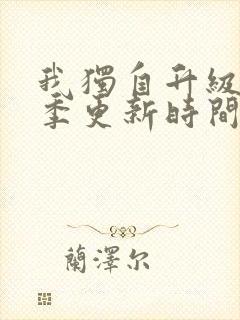 我獨自升級
季更新時間
蘭澤尔